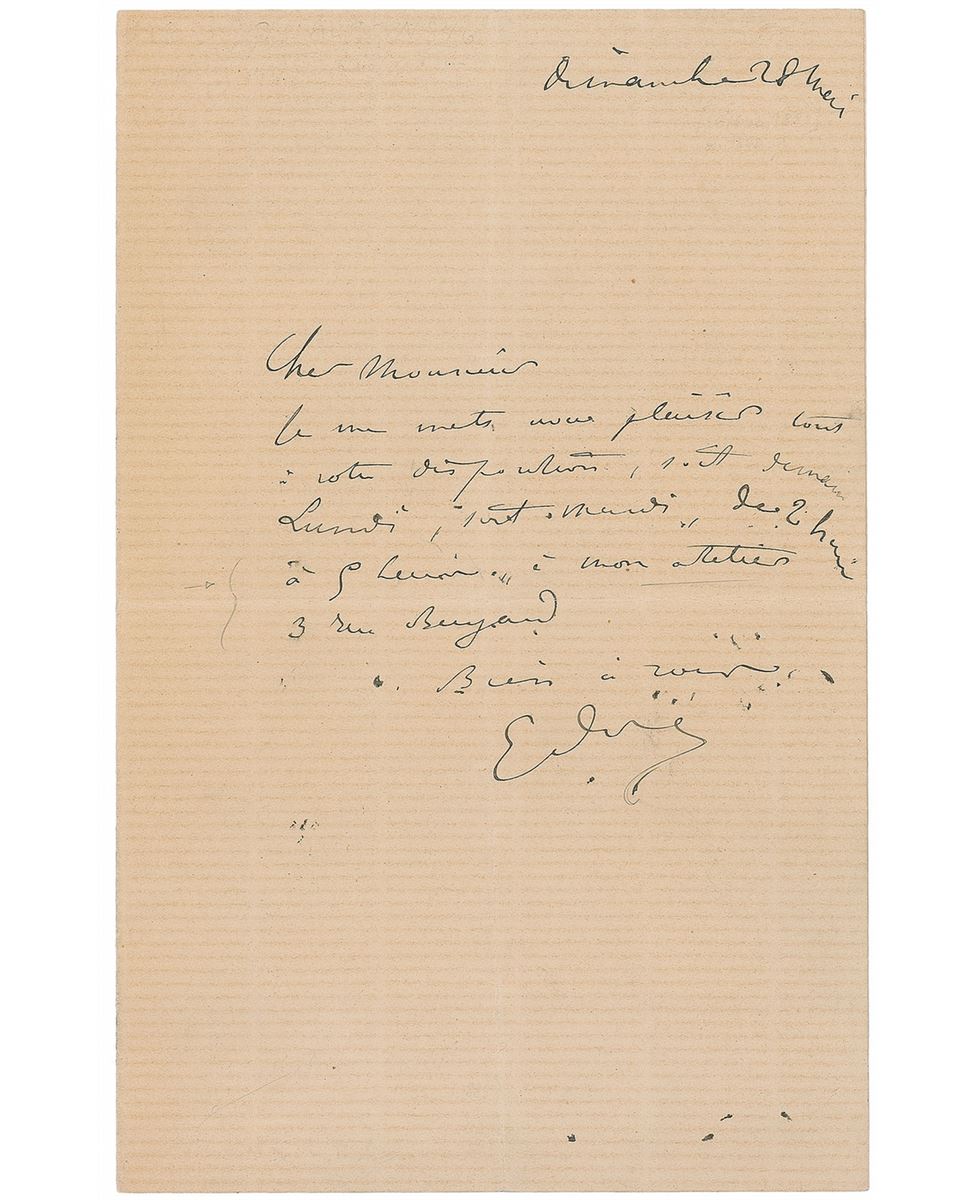 dimanche 28 Mai
Cher Monsieur
Je me mets avec plaisir tout
à votre disposition, soit demain
Lundi, soit mardi, de 2 heures
à 5 heures, à mon atelier
3 rue Bayard
Bien à vous